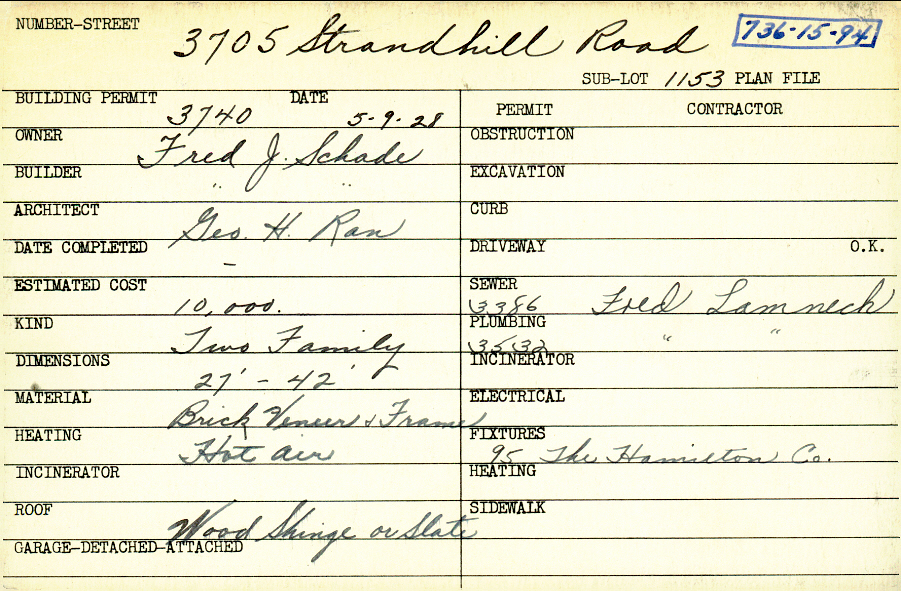 NUMBER-STREET
3705 Strandhill Road
736-15-94
SUB-LOT 1153 PLAN FILE
BUILDING PERMIT DATE
3740 5-9-28
PERMIT CONTRACTOR
OWNER
Fred J. Schade
BUILDER
" "
ARCHITECT
Geo. H. Rau
DATE COMPLETED
–
ESTIMATED COST
10,000.
KIND
Two Family
DIMENSIONS
27' - 42'
MATERIAL
Brick Veneer & Frame
HEATING
Hot air
INCINERATOR
ROOF
Wood Shinge or Slate
GARAGE-DETACHED-ATTACHED
OBSTRUCTION
EXCAVATION
CURB
DRIVEWAY O.K.
SEWER
3386 Fred Lamneck
PLUMBING
3532 " "
INCINERATOR
ELECTRICAL
FIXTURES
95 The Hamilton Co.
HEATING
SIDEWALK